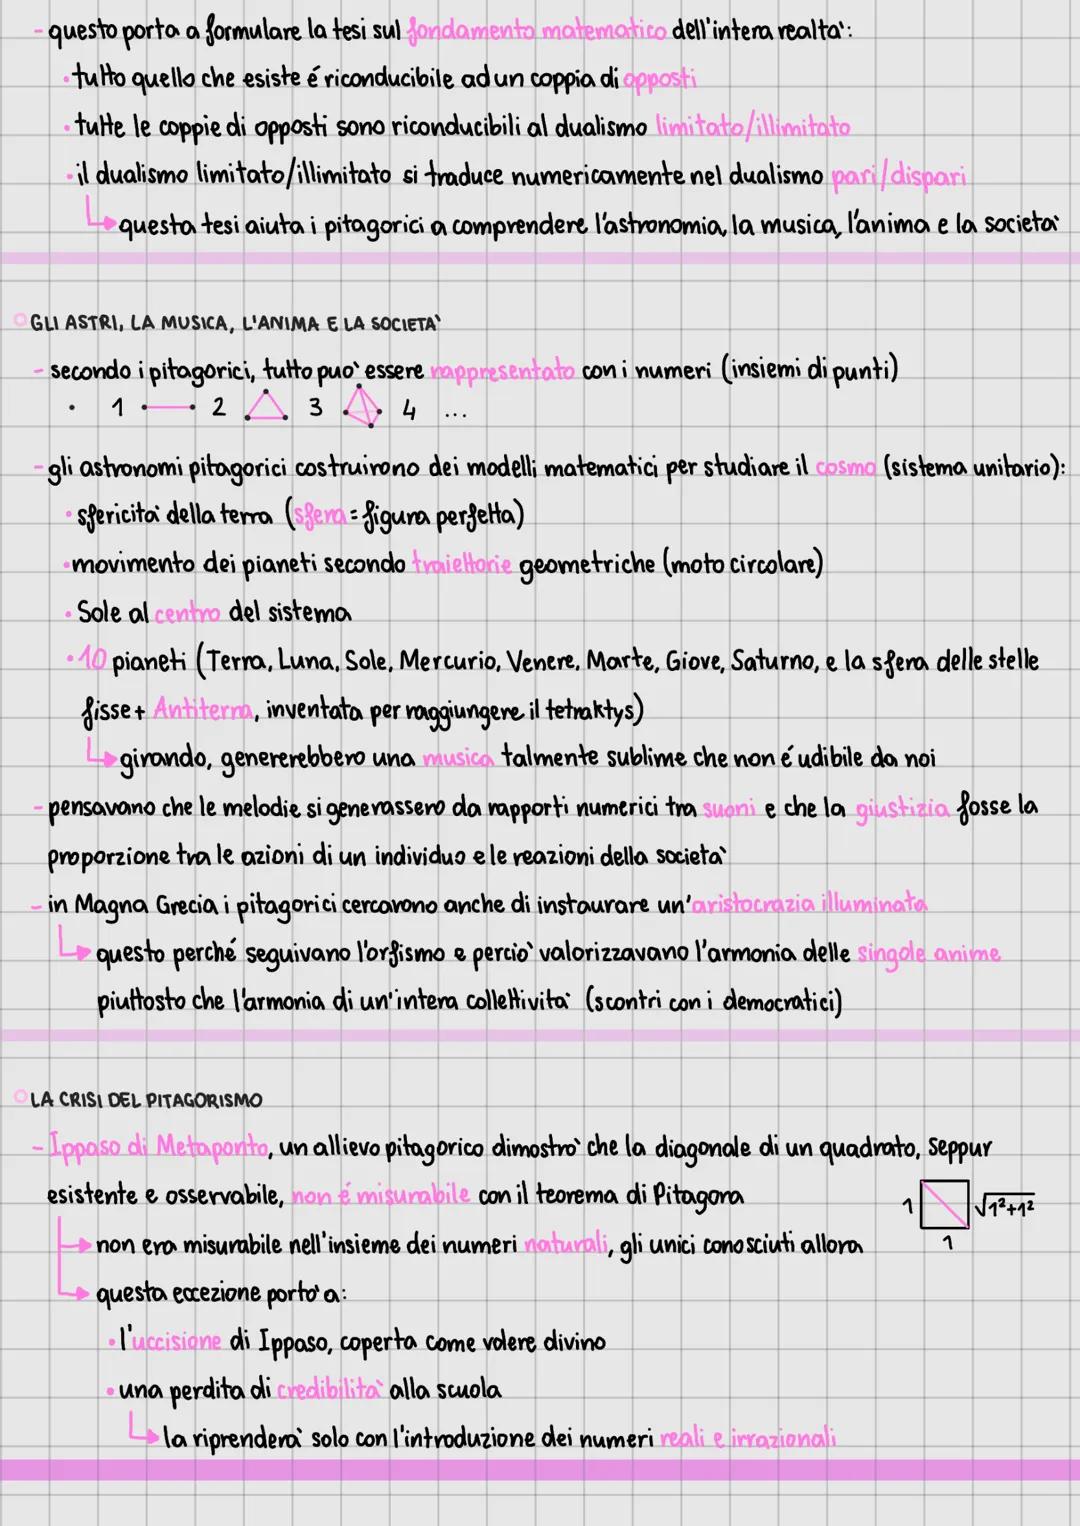 - questo porta a formulare la tesi sul fondamento matematico dell'intera realta':
• tutto quello che esiste é riconducibile ad un coppia di opposti
• tutte le coppie di opposti sono riconducibili al dualismo limitato/illimitato
• il dualismo limitato/illimitato si traduce numericamente nel dualismo pari/dispari
questa tesi aiuta i pitagorici a comprendere l'astronomia, la musica, l'anima e la societa'
GLI ASTRI, LA MUSICA, L'ANIMA E LA SOCIETA'
- secondo i pitagorici, tutto puo' essere rappresentato con i numeri (insiemi di punti)
1 2 3 4 ...
- gli astronomi pitagorici costruirono dei modelli matematici per studiare il cosmo (sistema unitario):
• sfericita' della terra (sfera = figura perfetta)
• movimento dei pianeti secondo traiettorie geometriche (moto circolare)
• Sole al centro del sistema
• 10 pianeti (Terra, Luna, Sole, Mercurio, Venere, Marte, Giove, Saturno, e la sfera delle stelle
fisse + Antiterra, inventata per raggiungere il tetraktys)
girando, genererebbero una musica talmente sublime che non é udibile da noi
- pensavano che le melodie si generassero da rapporti numerici tra suoni e che la giustizia fosse la
proporzione tra le azioni di un individuo e le reazioni della societa'
- in Magna Grecia i pitagorici cercarono anche di instaurare un'aristocrazia illuminata
questo perché seguivano l'orfismo e percio' valorizzavano l'armonia delle singole anime
piuttosto che l'armonia di un'intera collettivita' (scontri con i democratici)
LA CRISI DEL PITAGORISMO
- Ippaso di Metaponto, un allievo pitagorico dimostro' che la diagonale di un quadrato, seppur
esistente e osservabile, non é misurabile con il teorema di Pitagora
1 √1²+1²
1
non era misurabile nell'insieme dei numeri naturali, gli unici conosciuti allora
questa eccezione porto' a:
• l'uccisione di Ippaso, coperta come volere divino
• una perdita di credibilita' alla scuola
la riprendera' solo con l'introduzione dei numeri reali e irrazionali